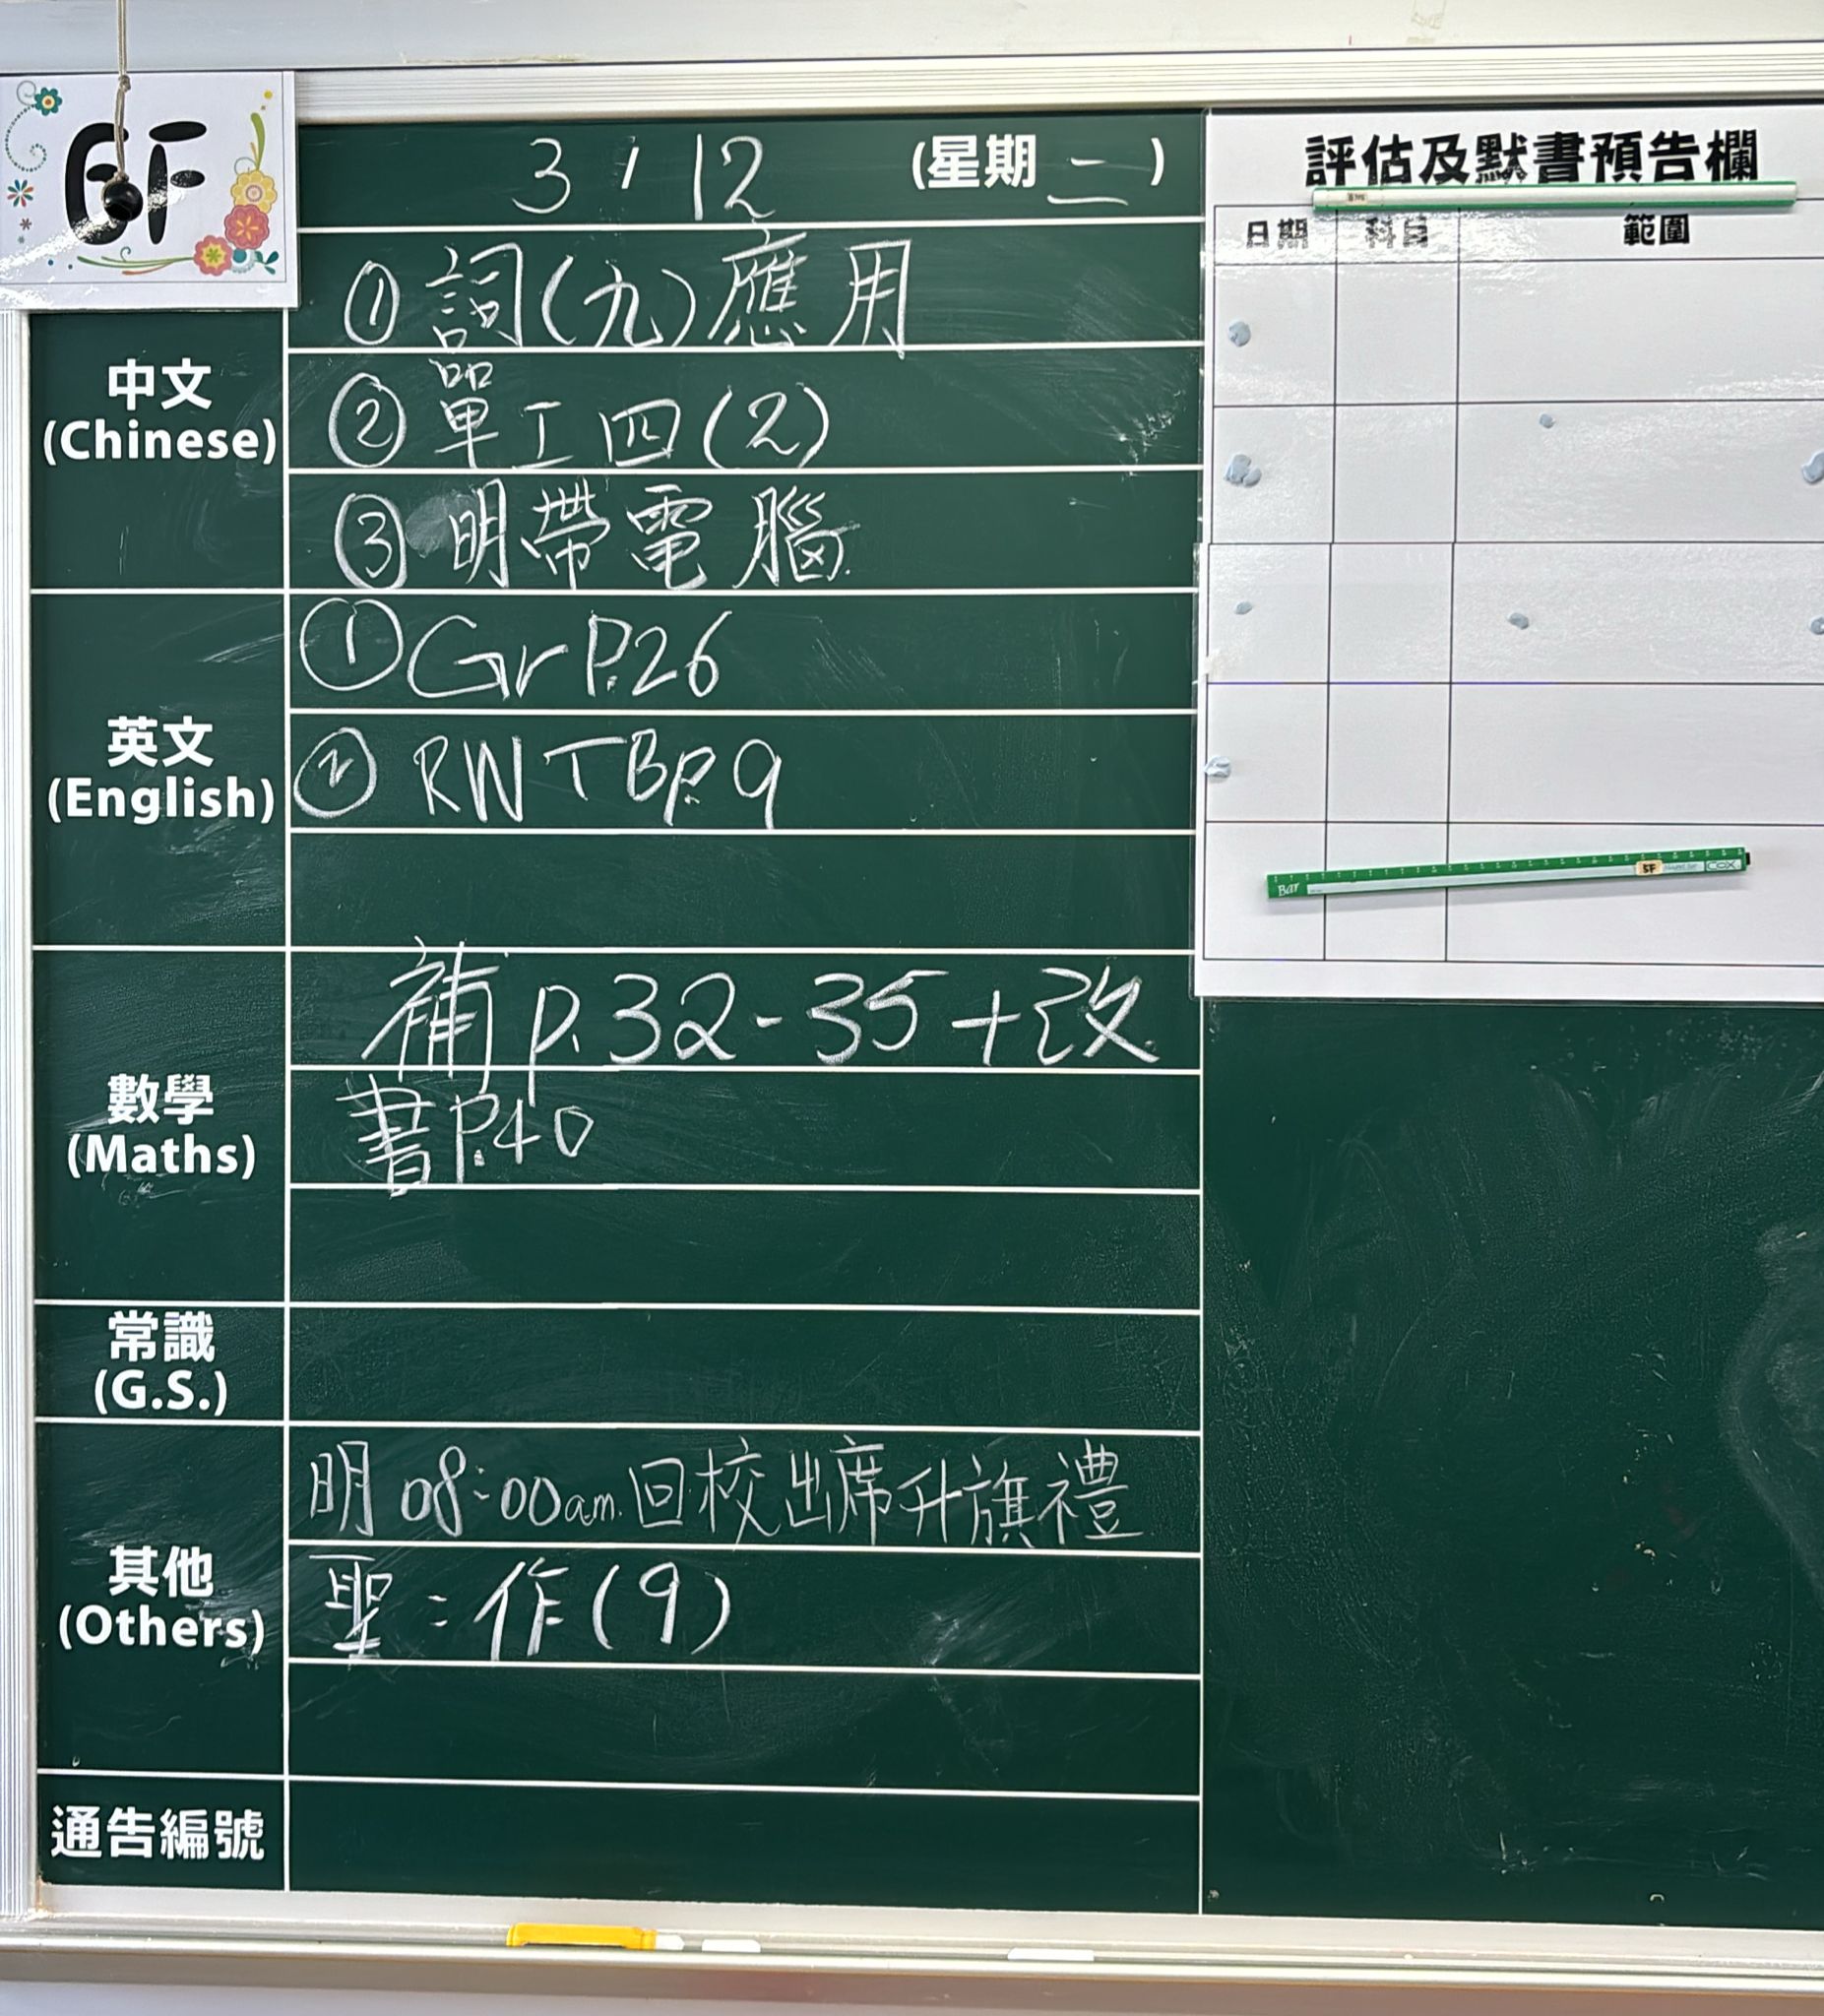 6F
3 / 12 (星期二)
評估及默書預告欄
日期 科目 範圍
中文
(Chinese)
① 詞(九)應用
② 單工四(2)
③ 明帶電腦
英文
(English)
① Gr P.26
② RW TB P.9
數學
(Maths)
補 p.32-35+改
書 P.40
常識
(G.S.)
其他
(Others)
明 08:00am 回校出席升旗禮
聖:作(9)
通告編號
Bar
5F